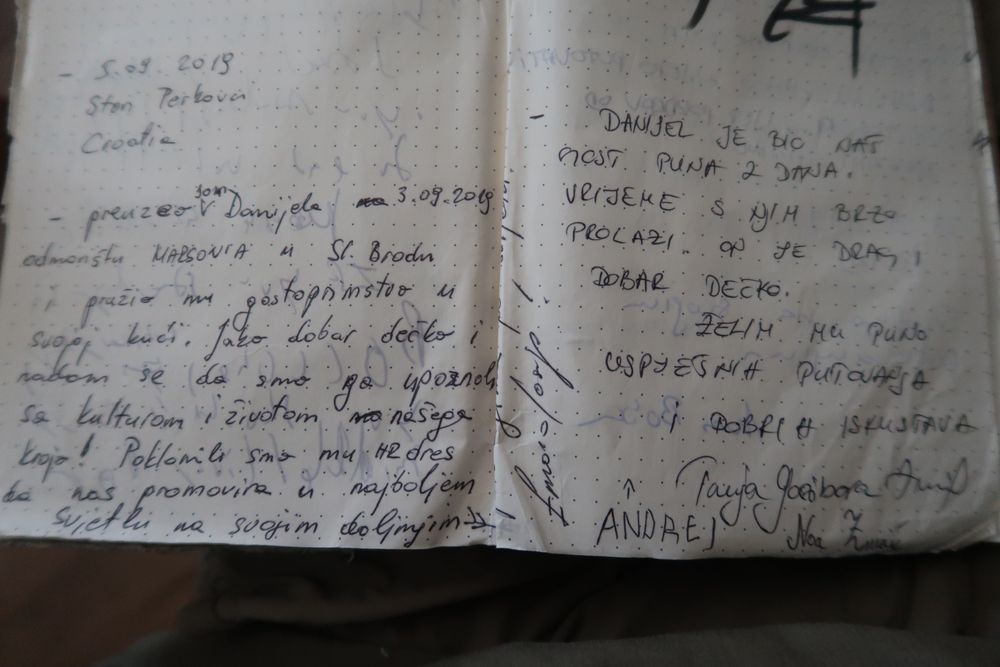 - 5.09.2019
Stari Perkovci
Croatia
- preuzeo sam Danijela 3.09.2019.
odmorištu MARSONIA u Sl. Brodu
i pružio mu gostoprimstvo u
svojoj kući. Jako dobar dečko i
nadam se da smo ga upoznali
sa kulturom i životom našega
kraja! Poklonili smo mu HR dres
da nas promovira u najboljem
svjetlu na svojim daljnjim →
- DANIJEL JE BIO NAŠ
GOST PUNA 2 DANA.
VRIJEME S NJIM BRZO
PROLAZI. ON JE DRAG,
DOBAR DEČKO.
ŽELIM MU PUNO
USPJEŠNIH PUTOVANJA
I DOBRIH ISKUSTAVA
↑ Tanja
ANDREJ Noa